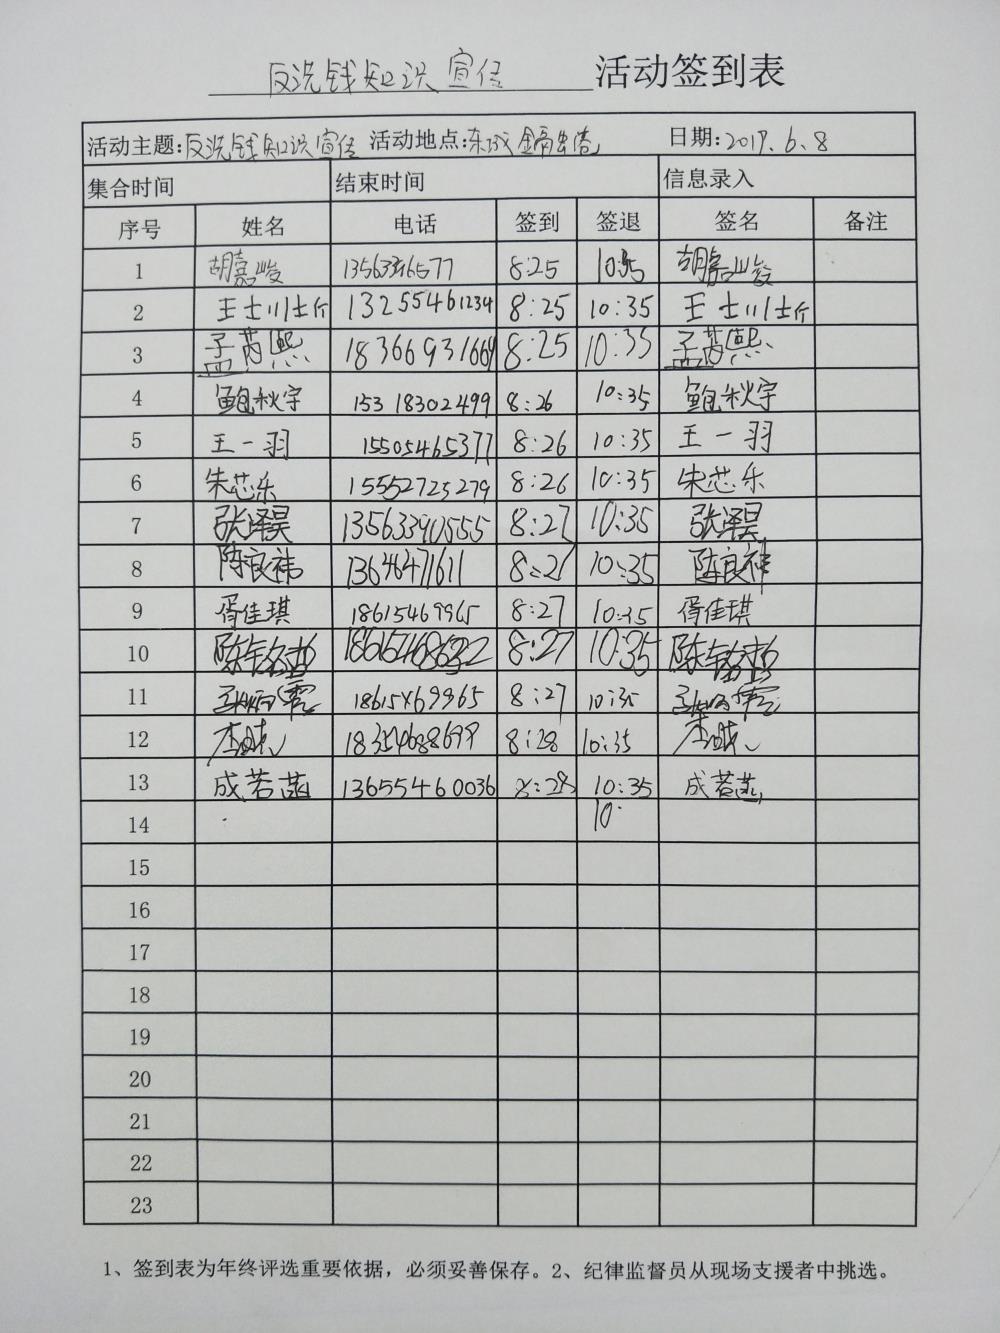 反洗钱知识宣传 活动签到表
活动主题:反洗钱知识宣传 活动地点:东城 日期:2017.6.8
集合时间 结束时间 信息录入
序号 姓名 电话 签到 签退 签名 备注
1 胡嘉峻 8:25 10:35 胡嘉峻
2 王士川 13255461234 8:25 10:35 王士川
3 孟芮熙 18366931669 8:25 10:35 孟芮熙
4 鲍秋宇 15318302499 8:26 10:35 鲍秋宇
5 王一羽 15505465377 8:26 10:35 王一羽
6 朱芯乐 15552725279 8:26 10:35 朱芯乐
7 张泽昊 13563390555 8:27 10:35 张泽昊
8 陈良祎 13646471611 8:27 10:35 陈良祎
9 胥佳琪 18615469965 8:27 10:35 胥佳琪
10 8:27 10:35
11 8:27 10:35
12 8:28 10:35
13 成若菡 13655460036 8:28 10:35 成若菡
14 10:
15
16
17
18
19
20
21
22
23
1、签到表为年终评选重要依据，必须妥善保存。2、纪律监督员从现场支援者中挑选。